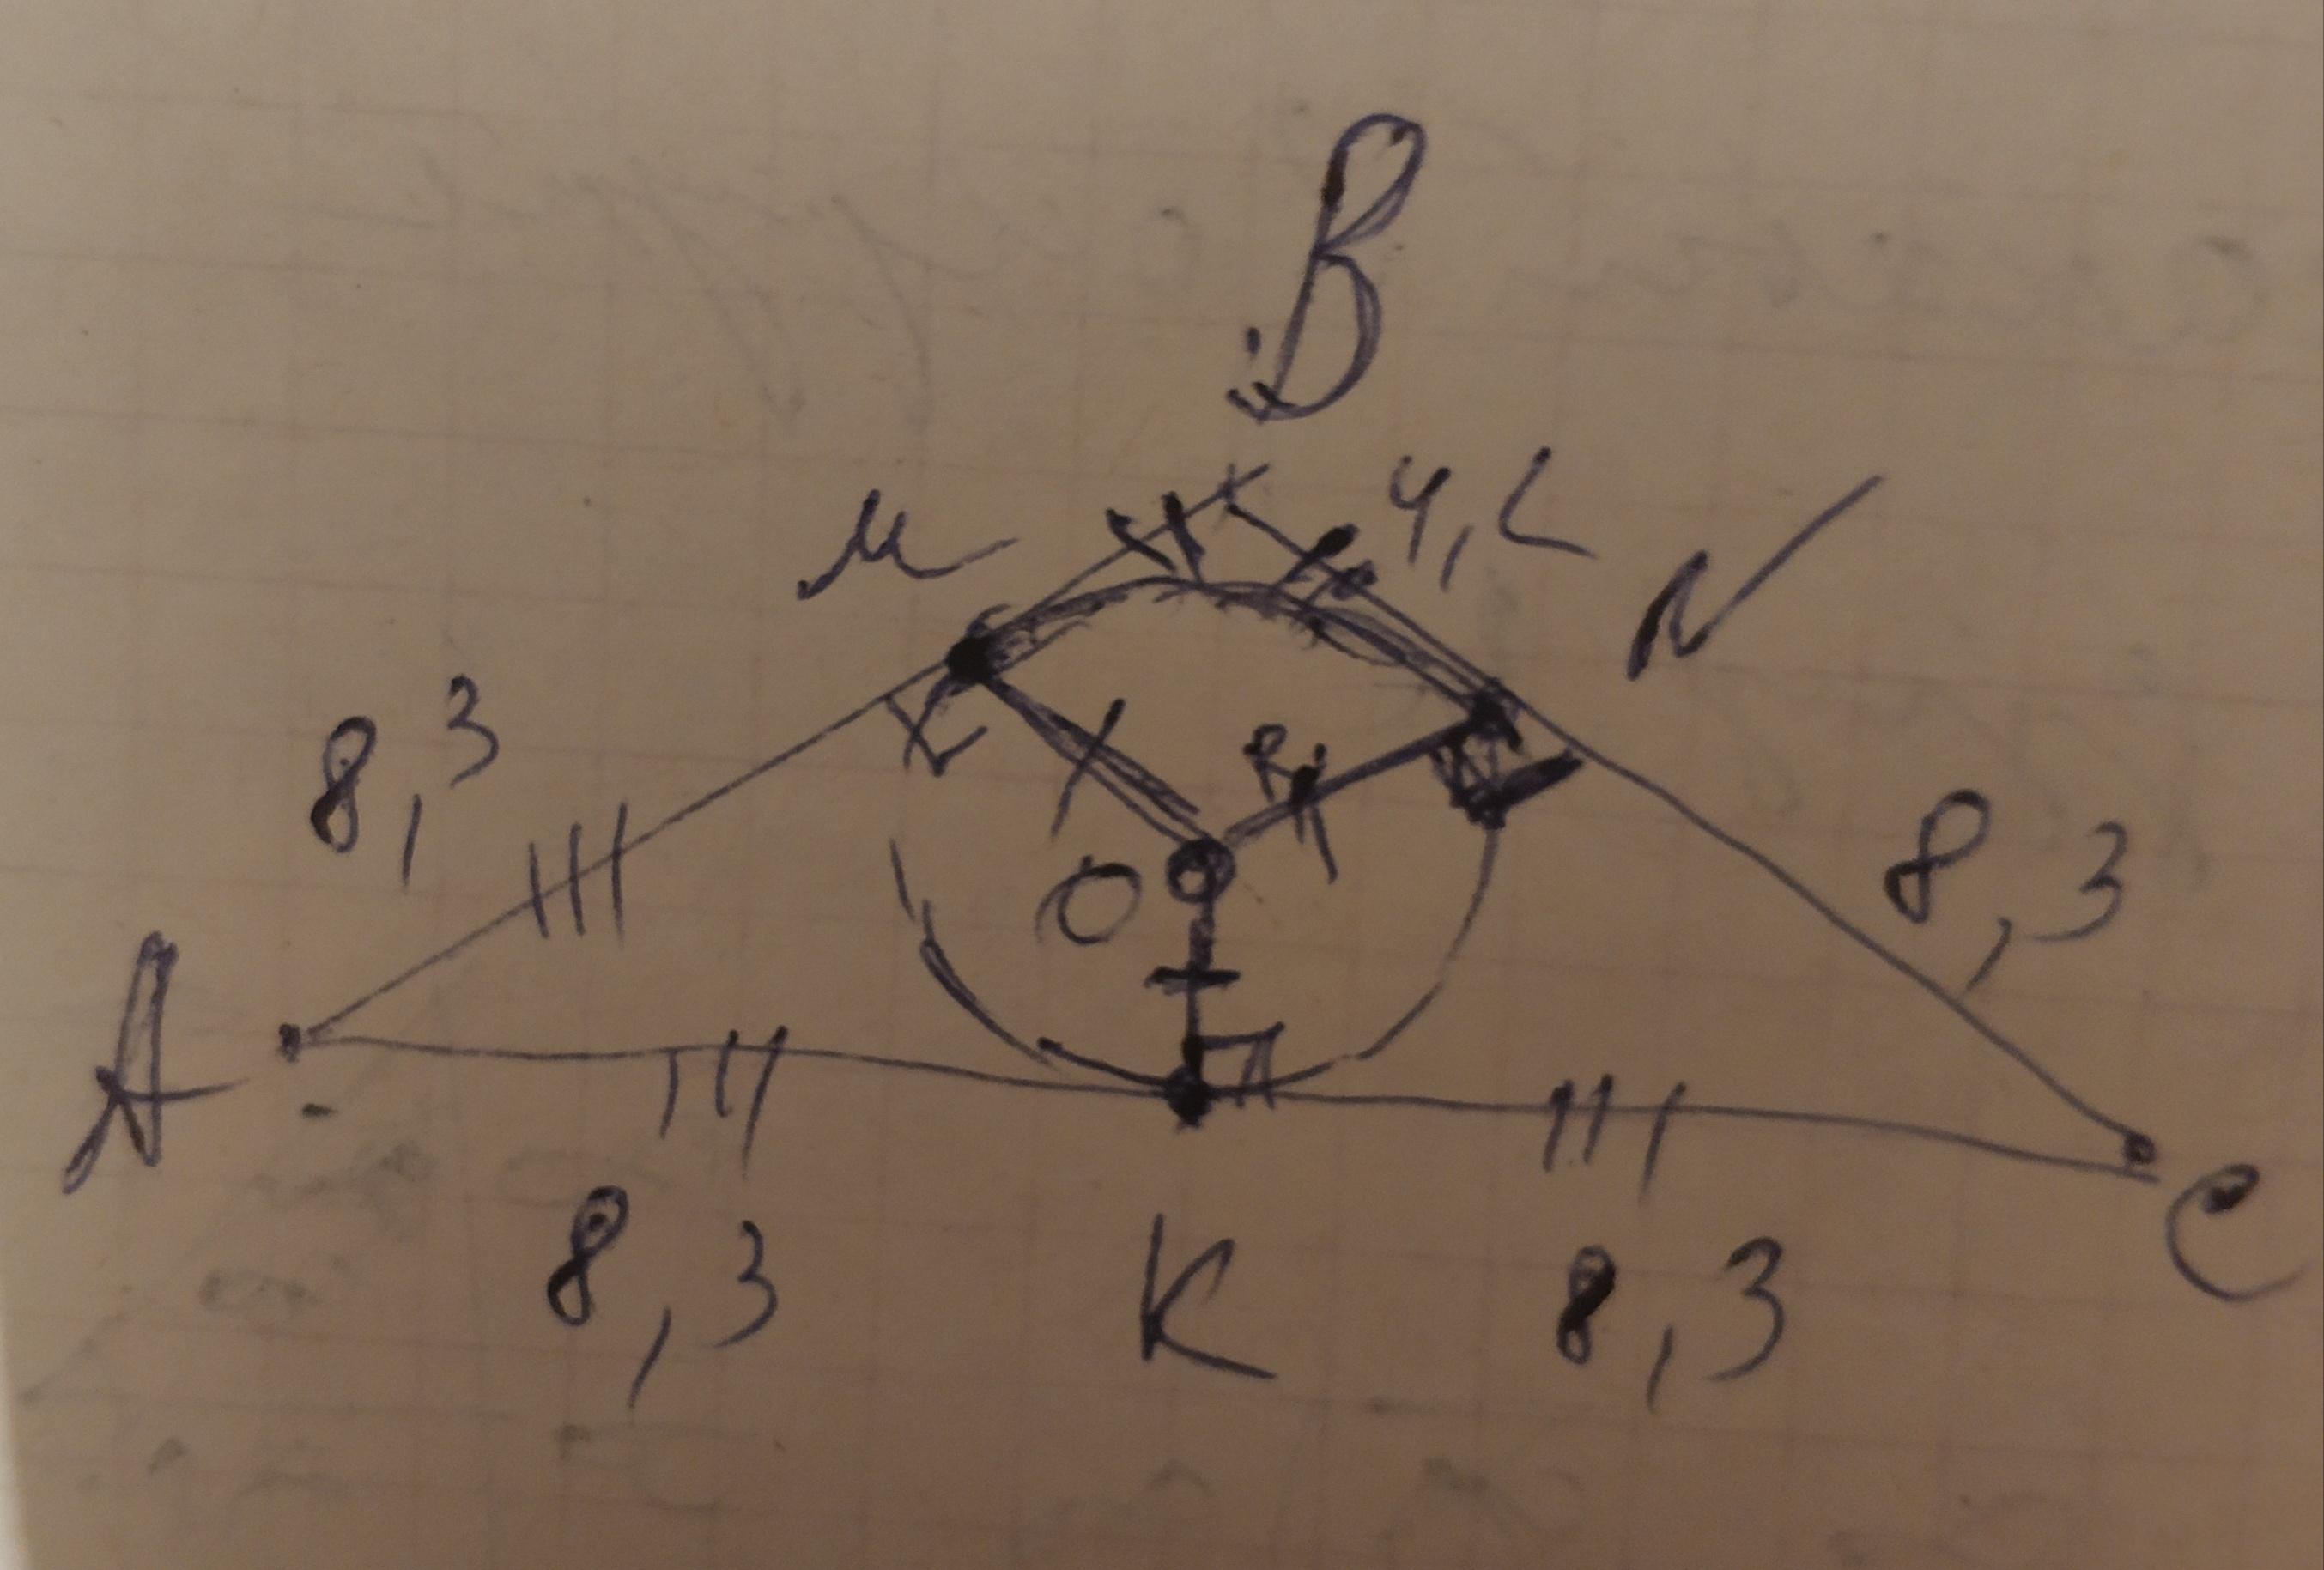 B
M
4,2
N
8,3
R
8,3
O
A
8,3
K
8,3
C